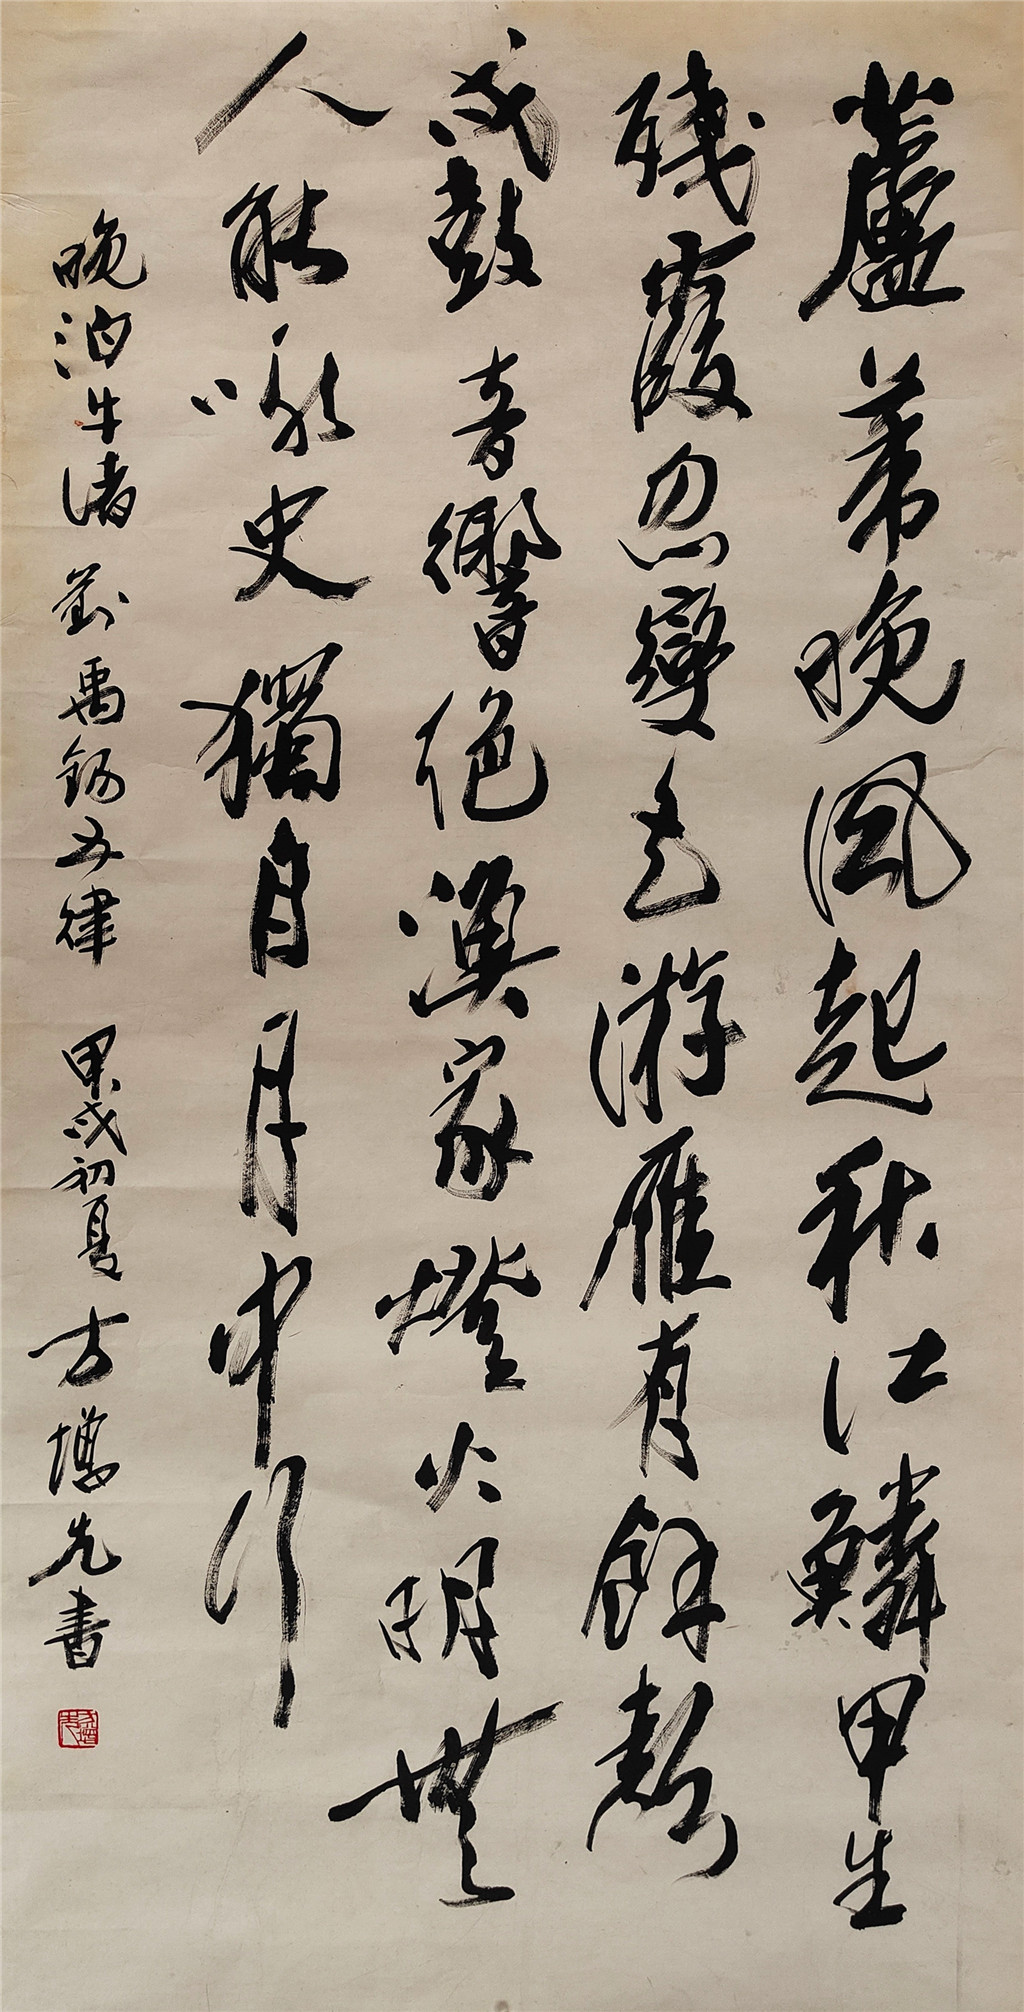 蘆葦晚風起秋江鱗甲生
殘霞忽變色游雁有餘聲
戍鼓音響絕漁家燈火明無
人能咏史獨自月中行
晚泊牛渚 劉禹錫五律 甲戌初夏 方增先書